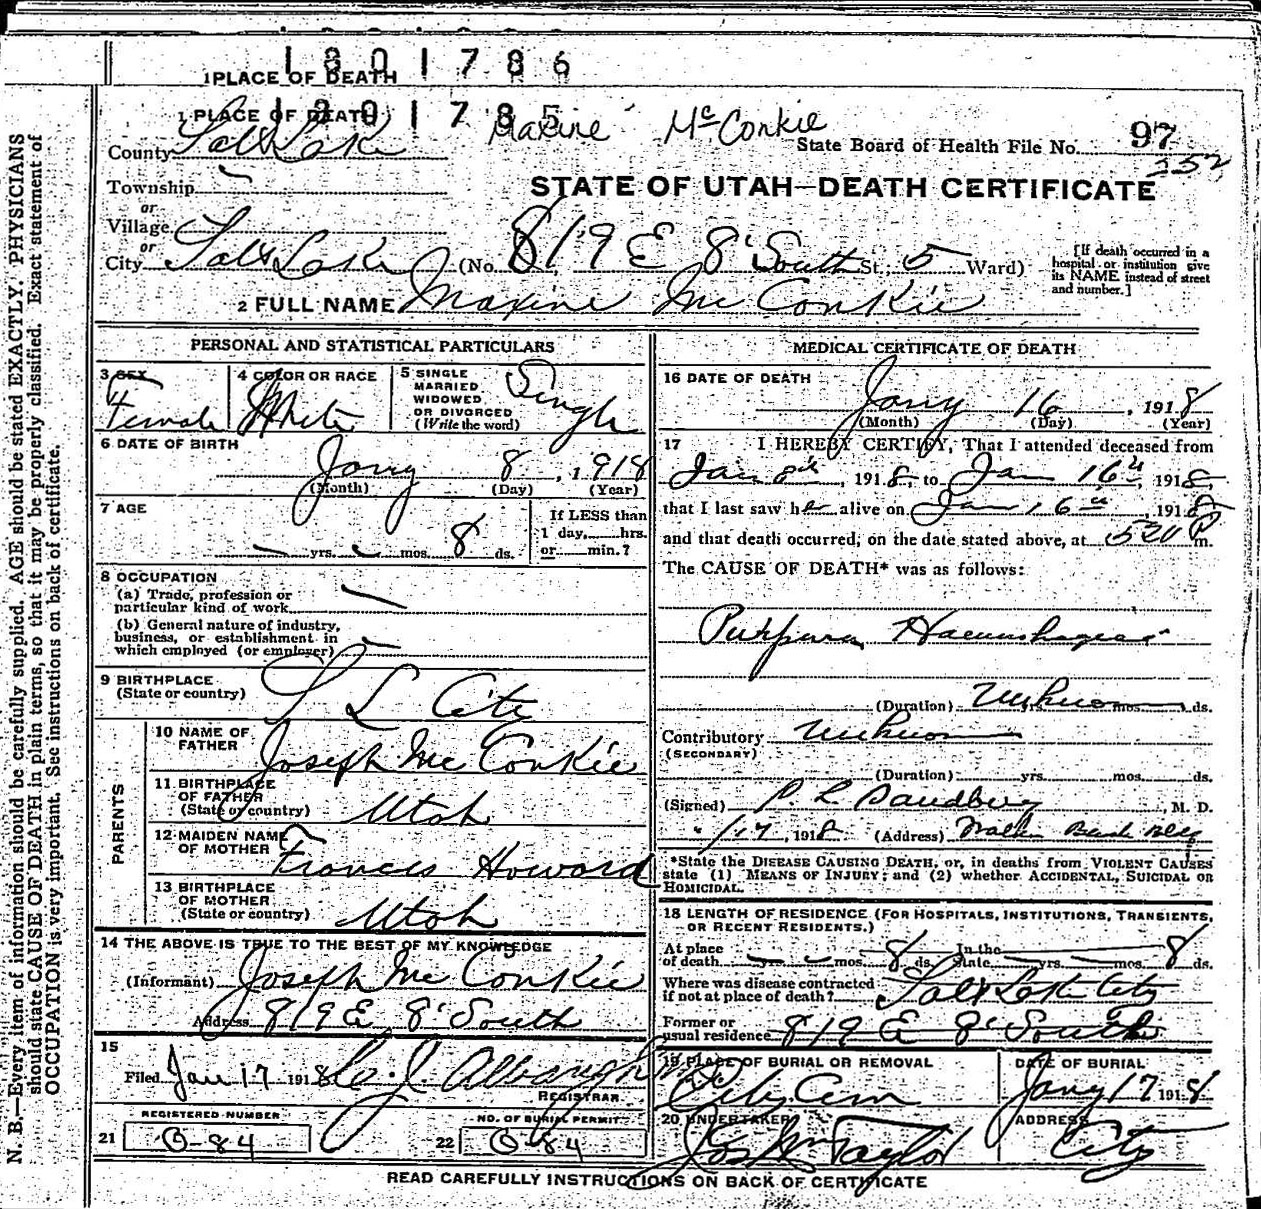 1301786
1 PLACE OF DEATH
1301785
1 PLACE OF DEATH
Maxine McConkie
County Salt Lake
State Board of Health File No. 97
352
Township —
or
Village
or
City Salt Lake (No. 819 E 8' South St. 5 Ward)
STATE OF UTAH—DEATH CERTIFICATE
[If death occurred in a
hospital or institution give
its NAME instead of street
and number.]
2 FULL NAME Maxine Mc Conkie
PERSONAL AND STATISTICAL PARTICULARS
3 SEX
Female
4 COLOR OR RACE
White
5 SINGLE
MARRIED
WIDOWED
OR DIVORCED
(Write the word)
Single
6 DATE OF BIRTH
Jany 8, 1918
(Month) (Day) (Year)
7 AGE
— yrs. — mos. 8 ds.
If LESS than
1 day, hrs.
or min.?
8 OCCUPATION
(a) Trade, profession or
particular kind of work —
(b) General nature of industry,
business, or establishment in
which employed (or employer) —
9 BIRTHPLACE
(State or country)
S L City
PARENTS
10 NAME OF
FATHER
Joseph Mc Conkie
11 BIRTHPLACE
OF FATHER
(State or country)
Utah
12 MAIDEN NAME
OF MOTHER
Frances Howard
13 BIRTHPLACE
OF MOTHER
(State or country)
Utah
14 THE ABOVE IS TRUE TO THE BEST OF MY KNOWLEDGE
(Informant) Joseph Mc Conkie
Address 819 E 8' South
15
Filed Jan 17 1918 C. J. Albaugh
REGISTRAR
REGISTERED NUMBER
21 O-84
NO. OF BURIAL PERMIT
22 O-84
MEDICAL CERTIFICATE OF DEATH
16 DATE OF DEATH
Jany 16, 1918
(Month) (Day) (Year)
17 I HEREBY CERTIFY, That I attended deceased from
Jan 8th, 1918 to Jan 16th, 1918,
that I last saw her alive on Jan 16th, 1918
and that death occurred, on the date stated above, at 520 P m.
The CAUSE OF DEATH* was as follows:
Purpura
(Duration) Unknown mos. ds.
Contributory Unknown
(SECONDARY)
(Duration) yrs. mos. ds.
(Signed) P. L. Sandberg, M. D.
" /17, 1918 (Address) Walker Bank Bldg
*State the DISEASE CAUSING DEATH, or, in deaths from VIOLENT CAUSES
state (1) MEANS OF INJURY; and (2) whether ACCIDENTAL, SUICIDAL OR
HOMICIDAL.
18 LENGTH OF RESIDENCE (FOR HOSPITALS, INSTITUTIONS, TRANSIENTS,
OR RECENT RESIDENTS.)
At place
of death — yrs. — mos. 8 ds. In the
State — yrs. — mos. 8 ds.
Where was disease contracted
if not at place of death? Salt Lake City
Former or
usual residence 819 E 8' South
19 PLACE OF BURIAL OR REMOVAL
City Cem
DATE OF BURIAL
Jany 17 1918
20 UNDERTAKER
Jos Wm Taylor
ADDRESS
City
READ CAREFULLY INSTRUCTIONS ON BACK OF CERTIFICATE
N. B.—Every item of information should be carefully supplied. AGE should be stated EXACTLY. PHYSICIANS
should state CAUSE OF DEATH in plain terms, so that it may be properly classified. Exact statement of
OCCUPATION is very important. See instructions on back of certificate.